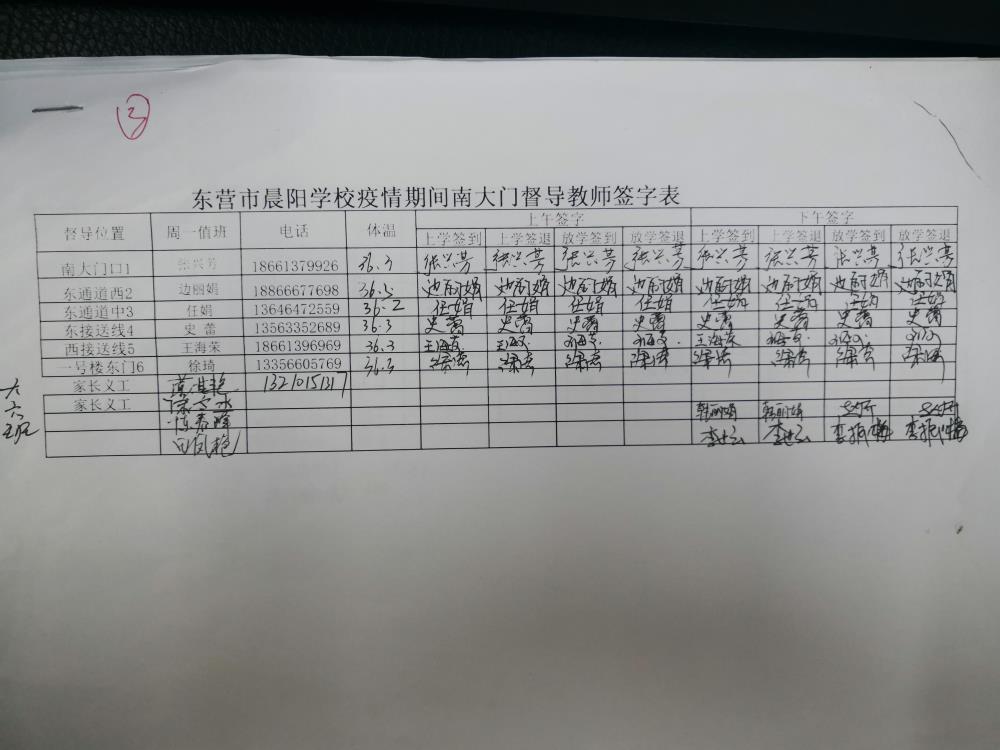 3
东营市晨阳学校疫情期间南大门督导教师签字表
督导位置 周一值班 电话 体温 上午签字 下午签字
上学签到 上学签退 放学签到 放学签退 上学签到 上学签退 放学签到 放学签退
南大门口1 张兴芳 18661379926 36.3 张兴芳 张兴芳 张兴芳 张兴芳 张兴芳 张兴芳 张兴芳 张兴芳
东通道西2 边丽娟 18866677698 36.5 边丽娟 边丽娟 边丽娟 边丽娟 边丽娟 边丽娟 边丽娟 边丽娟
东通道中3 任娟 13646472559 36.2 任娟 任娟 任娟 任娟 任娟 任娟 任娟 任娟
东接送线4 史蕾 13563352689 36.3 史蕾 史蕾 史蕾 史蕾 史蕾 史蕾 史蕾 史蕾
西接送线5 王海荣 18661396969 36.3 王海荣 王海荣 王海荣
一号楼东门6 徐琦 13356605769 36.3
家长义工 13210151317
家长义工
韩丽娟 韩丽娟
李振梅 李振梅
六